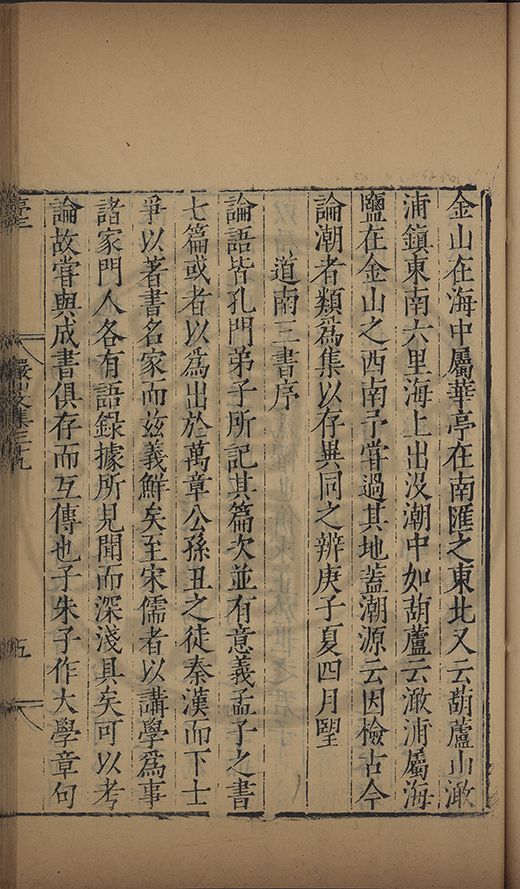 金山在海中屬華亭在南匯之東北又云葫蘆山澉
浦鎮東南六里海上出没潮中如葫蘆云澉浦屬海
鹽在金山之西南予嘗過其地蓋潮源云因檢古今
論潮者類爲集以存異同之辨庚子夏四月望
道南三書序
論語皆孔門弟子所記其篇次並有意義孟子之書
七篇或者以爲出於萬章公孫丑之徒秦漢而下士
爭以著書名家而兹義鮮矣至宋儒者以講學爲事
諸家門人各有語錄據所見聞而深淺具矣可以考
論故嘗與成書俱存而互傳也子朱子作大學章句
五